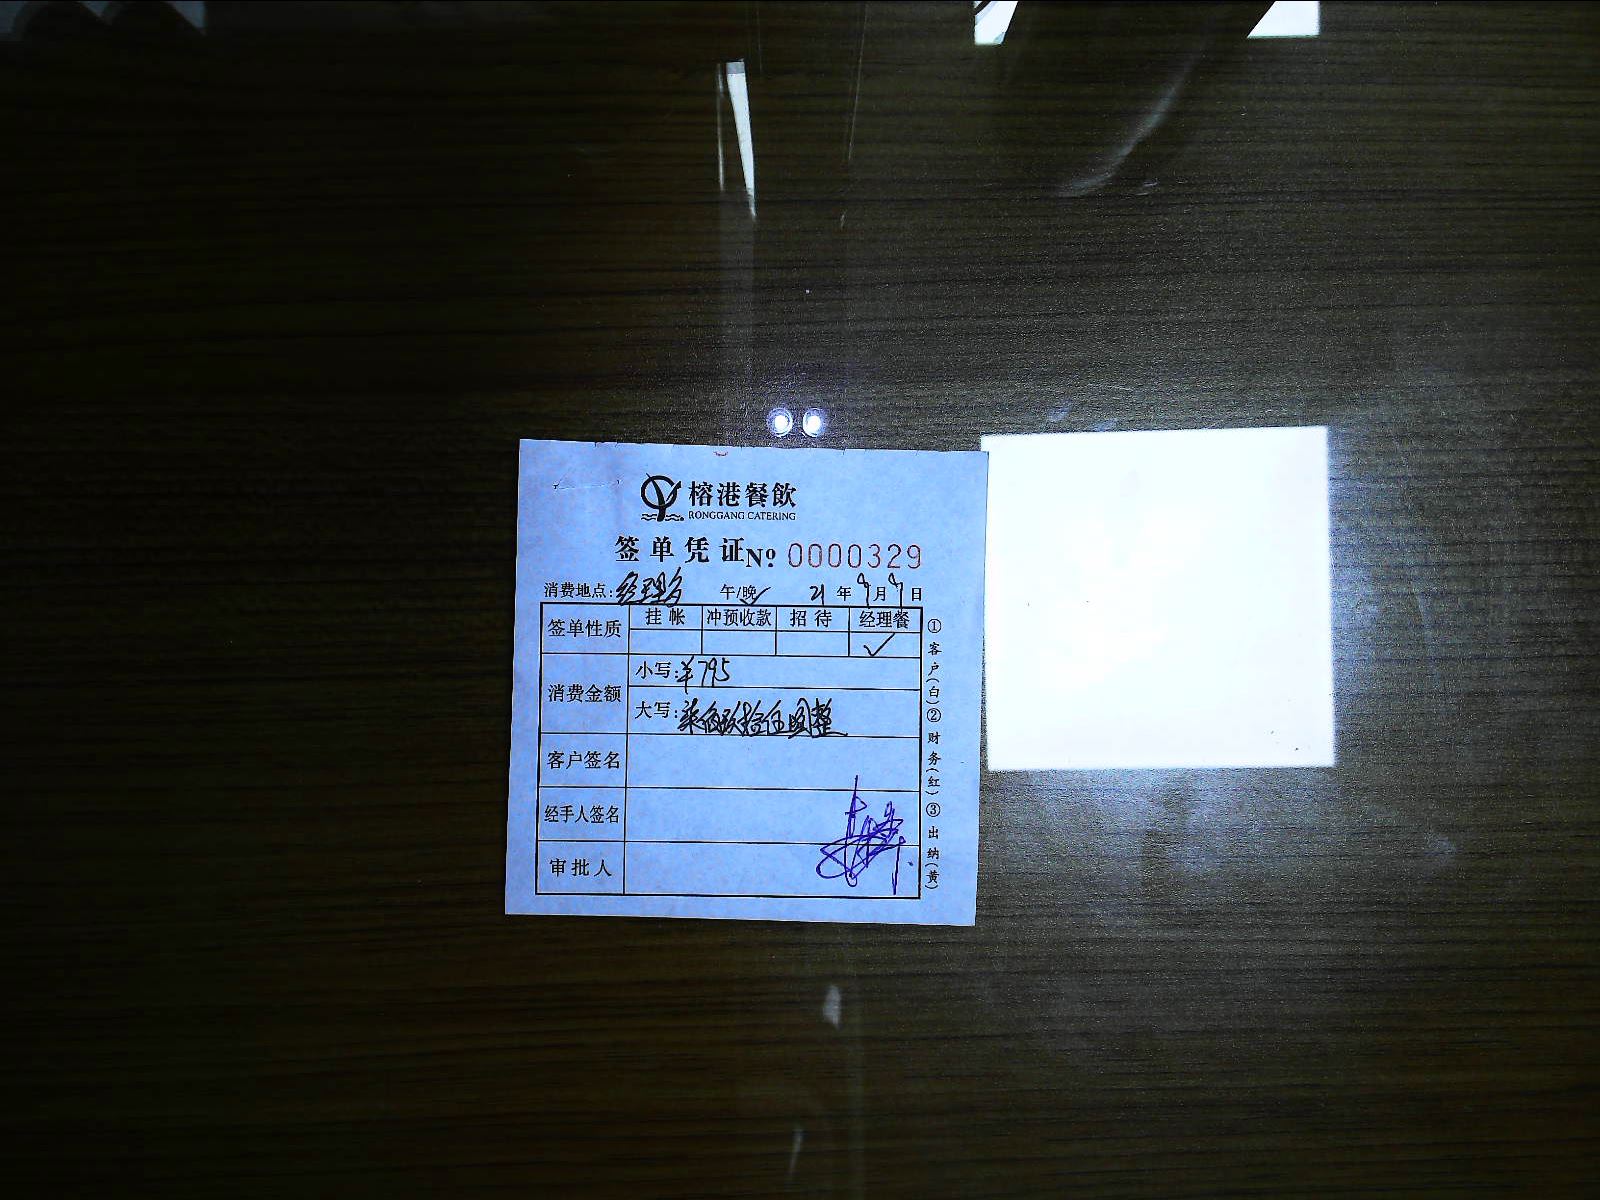 榕港餐飲
RONGGANG CATERING
签单凭证 Nº 0000329
消费地点: 经理 午/晚✓ 21年9月9日
签单性质 挂帐 冲预收款 招待 经理餐
✓
消费金额 小写:¥795
大写:柒佰玖拾伍圆整
客户签名
经手人签名
审批人
①客户(白)②财务(红)③出纳(黄)